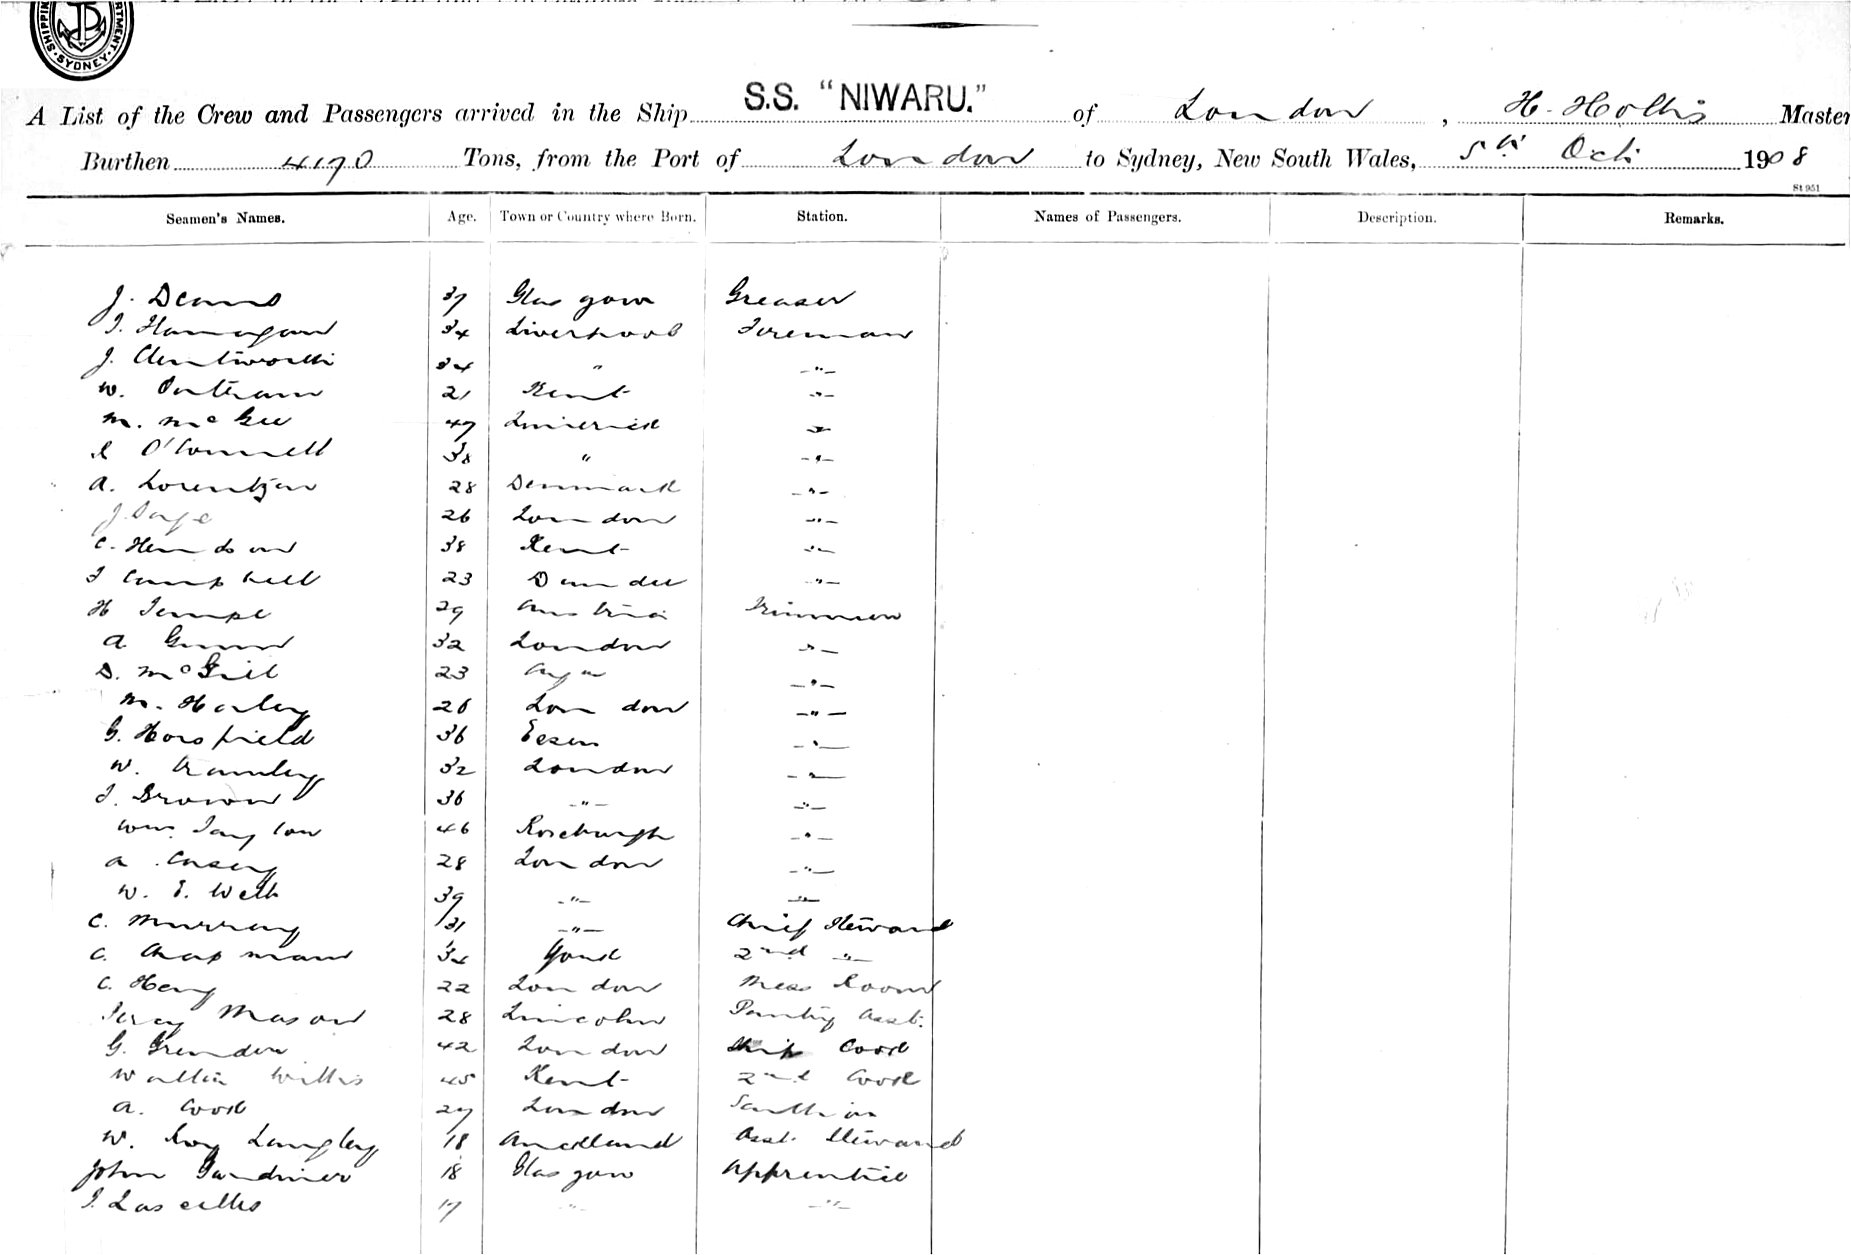 SHIPPING DEPARTMENT SYDNEY
A List of the Crew and Passengers arrived in the Ship S.S. "NIWARU." of London, H. Hollis Master
Burthen 4190 Tons, from the Port of London to Sydney, New South Wales, 5th Oct. 1908
St 951
Seamen's Names. Age. Town or Country where Born. Station. Names of Passengers. Description. Remarks.
J. Deans 37 Glasgow Greaser
34 Liverpool Fireman
J. 34 " -"-
W. 21 Kent -"-
M. McGee 47 Limerick -"-
O'Connell 38 " -"-
A. Lorentzen 28 Denmark -"-
J. Page 26 London -"-
C. 38 Kent -"-
Campbell 23 Dundee -"-
H Tempe 29 Austria Trimmer
A. Gunn 32 London -"-
D. McGill 23 -"-
M. Harley 26 London -"-
G. Horsfield 36 Essex -"-
W. 32 London -"-
Brown 36 -"- -"-
Wm. Taylor 46 Roxburgh -"-
A. Casey 28 London -"-
W. 39 -"- -"-
C. Murray 31 -"- Chief Steward
C. Chapman 34 York 2nd -"-
C. Hay 22 London Mess Room
Percy Mason 28 Lincoln Pantry Asst.
G. 42 London Ship Cook
Walter Willis 45 Kent 2nd Cook
A. Cook 27 London
W. Roy Langley 18 Auckland Asst. Steward
John Gardiner 18 Glasgow Apprentice
Lascelles 17 -"- -"-